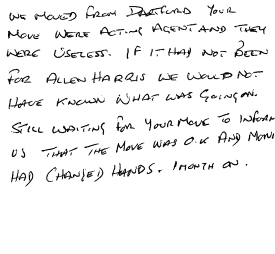 WE MOVED FROM DARTFORD YOUR
MOVE WERE ACTING AGENT AND THEY
WERE USELESS. IF IT HAD NOT BEEN
FOR ALLEN HARRIS WE WOULD NOT
HAVE KNOWN WHAT WAS GOING ON.
STILL WAITING FOR YOUR MOVE TO INFORM
US THAT THE MOVE WAS O.K AND MONE
HAD CHANGED HANDS. 1 MONTH ON.